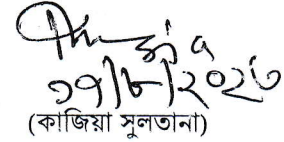 ১৭/৮/২০২৩
(কাজিয়া সুলতানা)